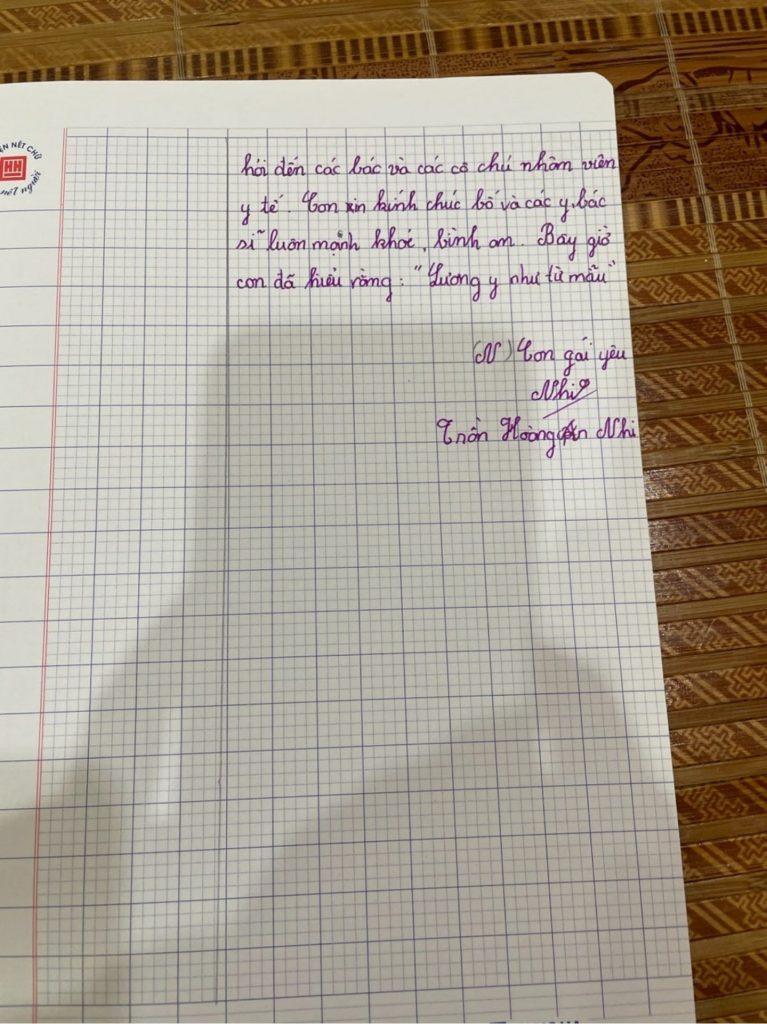 ÂN NÉT CHỮ
HH
nết người
hỏi đến các bác và các cô chú nhâm viên
y tế. Con xin kính chúc bố và các y, bác
sĩ luôn mạnh khoẻ, bình an. Bây giờ
con đã hiểu rằng: "Lương y như từ mẫu"
(N) Con gái yêu
Nhi
Trần Hoàng Nhi